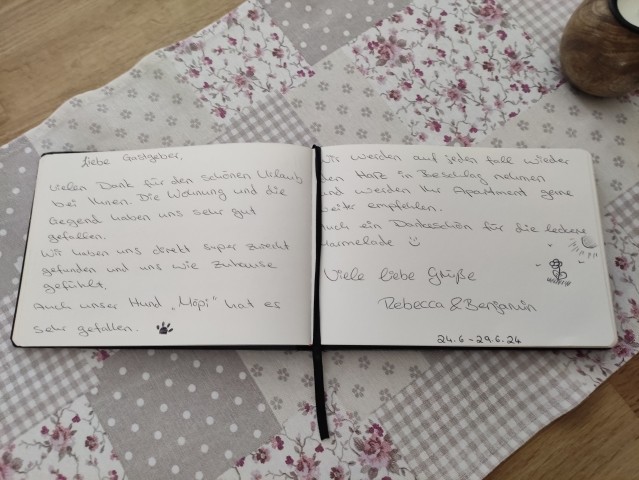 Liebe Gastgeber,
vielen Dank für den schönen Urlaub
bei Ihnen. Die Wohnung und die
Gegend haben uns sehr gut
gefallen.
Wir haben uns direkt super zurecht
gefunden und uns wie Zuhause
gefühlt.
Auch unser Hund „Möpi" hat es
sehr gefallen.
Wir werden auf jeden Fall wieder
den Harz in Beschlag nehmen
und werden Ihr Apartment gerne
weiter empfehlen.
Auch ein Dankeschön für die leckere
Marmelade
Viele liebe Grüße
Rebecca & Benjamin
24.6 - 29.6.24